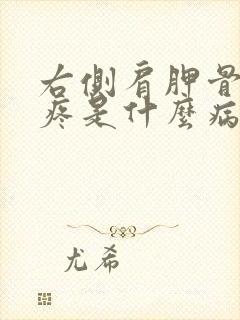 右側肩胛骨
疼是什麼病
尤希